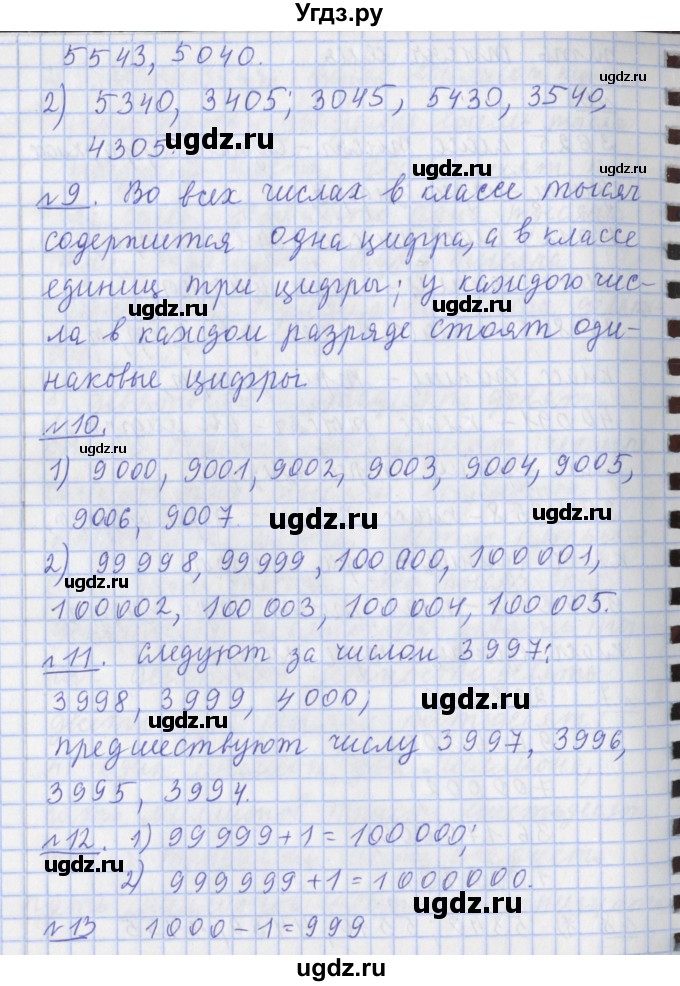 Угдз.ру
5543, 5040.
ugdz.ru
2) 5340, 3405; 3045, 5430, 3540,
4305.
ugdz.ru ugdz.ru
№9. Во всех числах в классе тысяч
содержится одна цифра, а в классе
единиц три цифры; у каждого чис-
ugdz.ru ugdz.ru
ла в каждом разряде стоят оди-
наковые цифры
№10.
ugdz.ru
1) 9000, 9001, 9002, 9003, 9004, 9005,
9006, 9007
ugdz.ru ugdz.ru
2) 99998, 99999, 100000, 100001,
ugdz.ru
100002, 100003, 100004, 100005.
№11. следуют за числом 3997:
3998, 3999, 4000;
ugdz.ru ugdz.ru
предшествуют числу 3997, 3996,
3995, 3994.
№12. 1) 99999+1=100000;
ugdz.ru
2) 999999+1=1000000.
ugdz.ru
№13 1000-1=999
ugdz.ru ugdz.ru
ugdz.ru